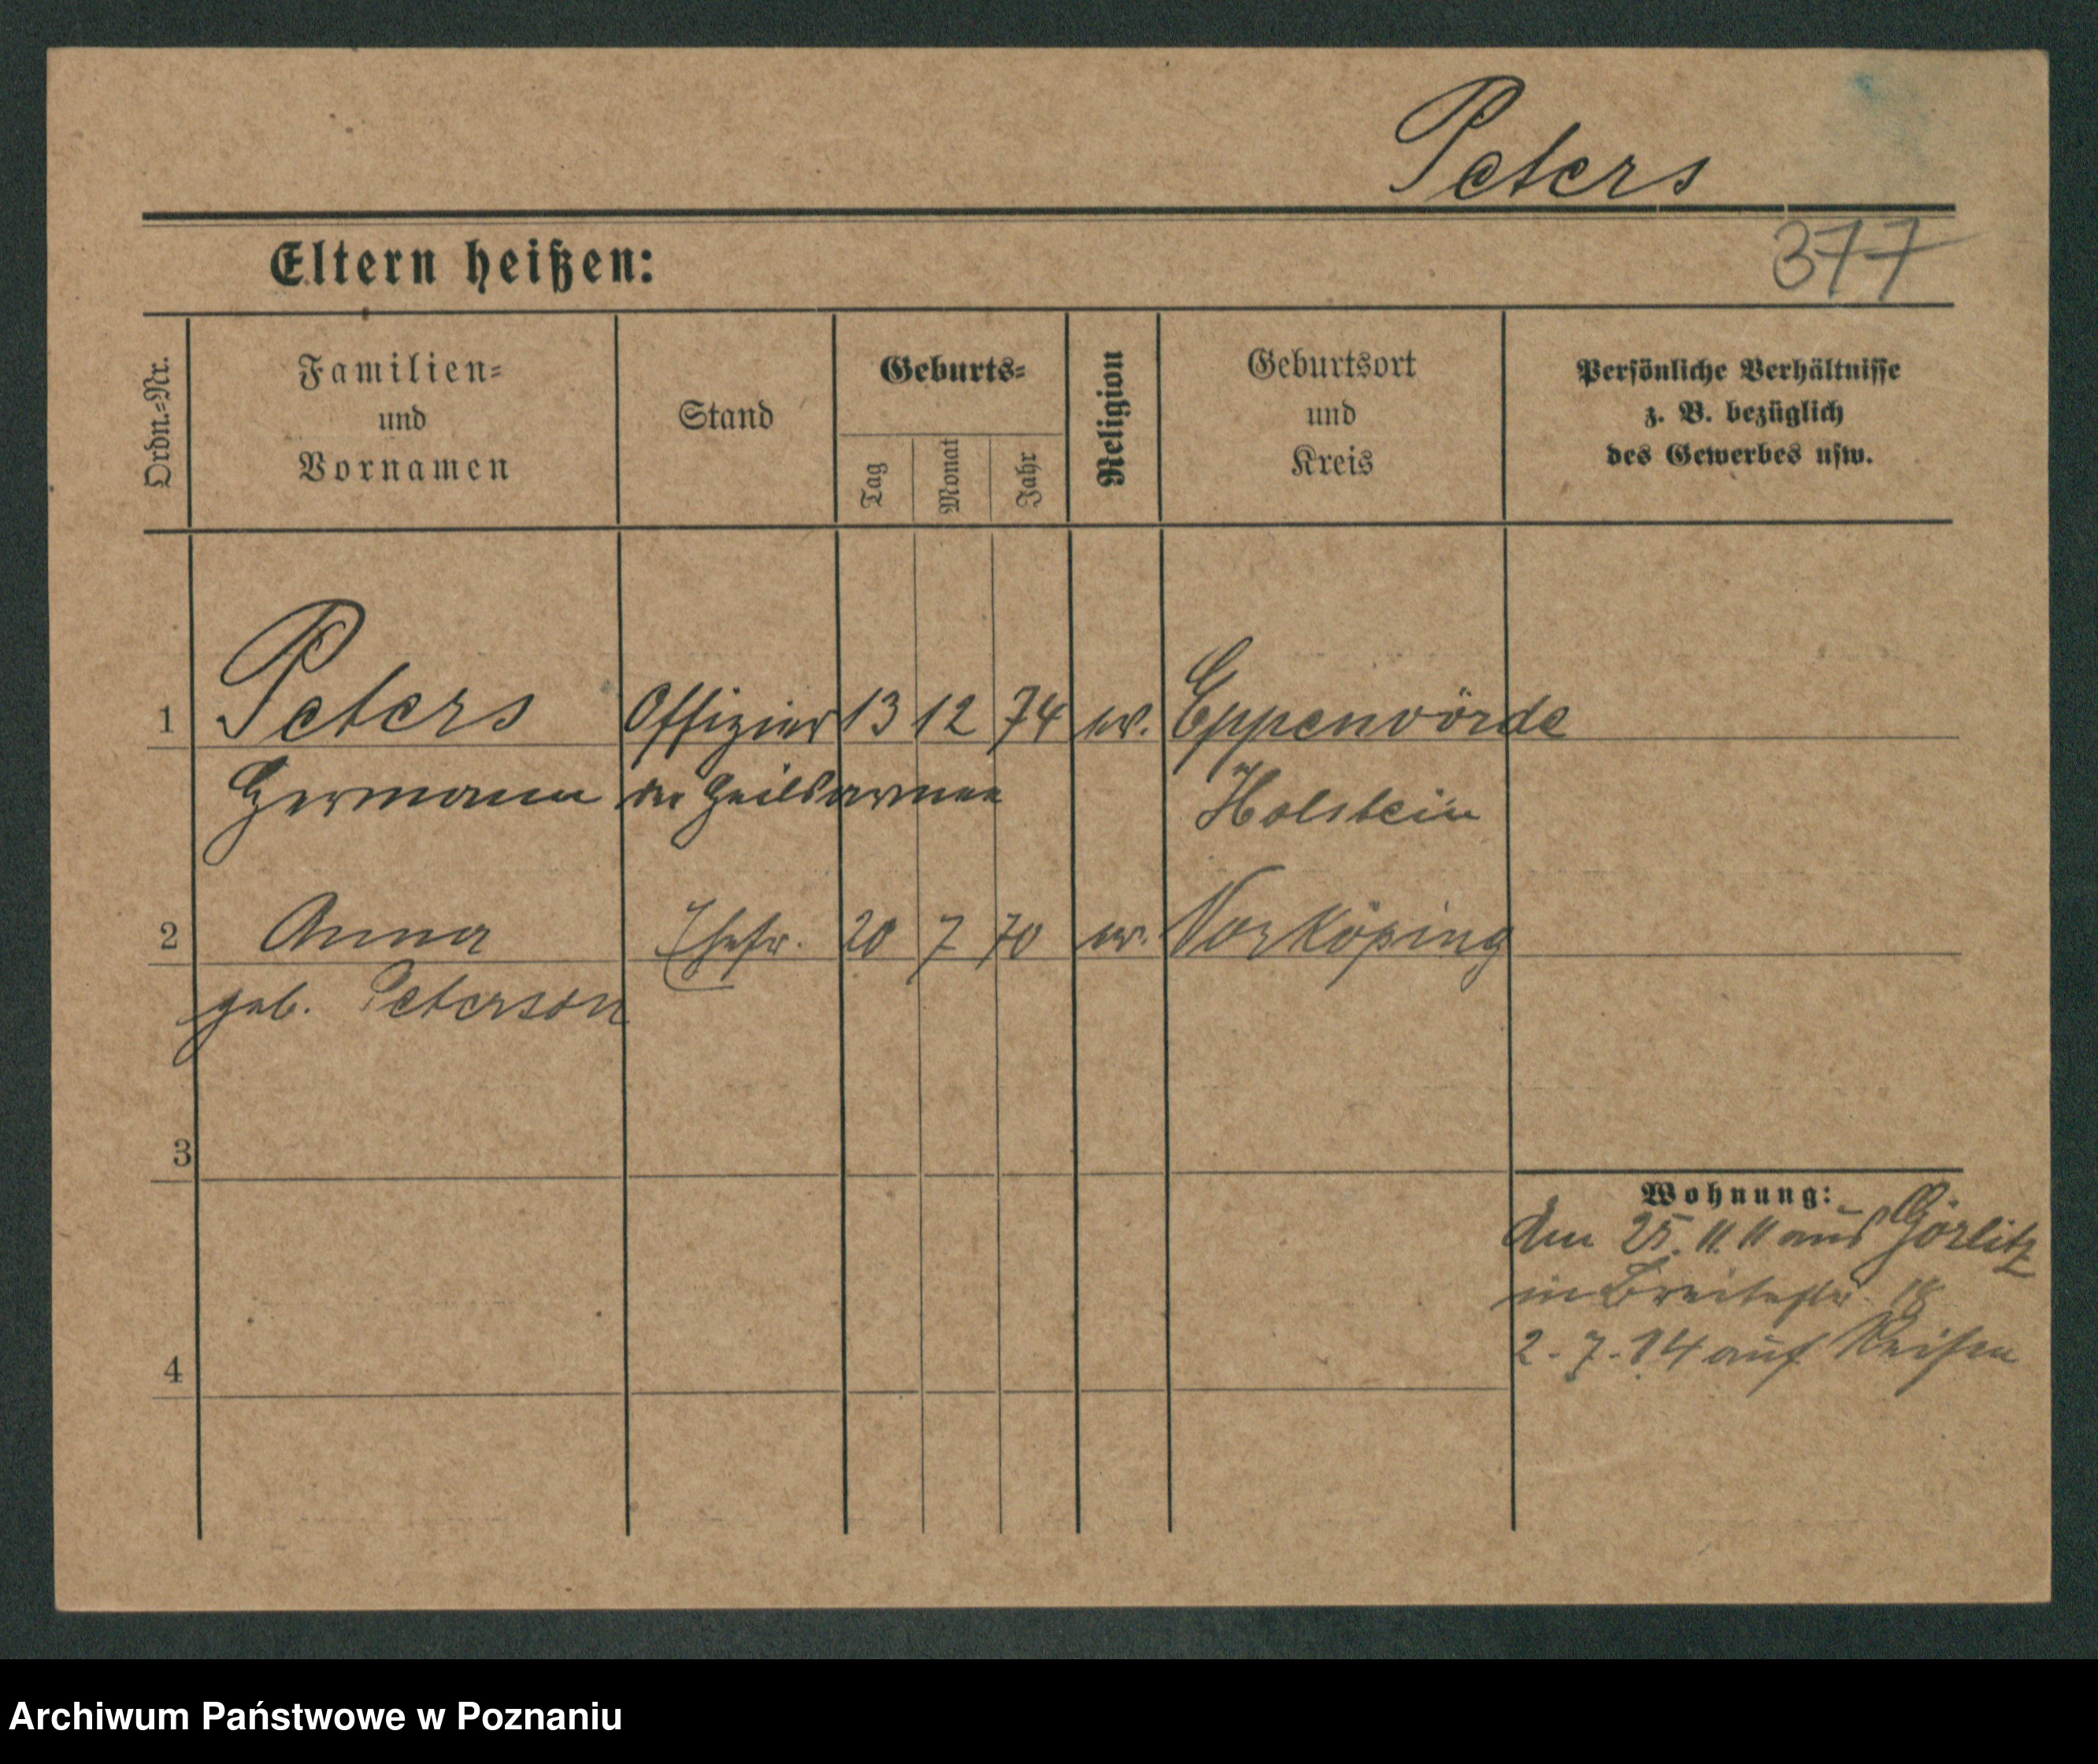 Peters
377
Eltern heißen:
Ordn.-Nr.
Familien- und Vornamen
Stand
Geburts-
Tag
Monat
Jahr
Religion
Geburtsort und Kreis
Persönliche Verhältnisse z. B. bezüglich des Gewerbes usw.
1 Peters Offizier 13 12 74 ev. Eppenvörde
Hermann der Heilsarmee Holstein
2 Anna Ehefr. 20 7 70 ev. Norköping
geb. Peterson
3
Wohnung:
Am 25. 11. 11 aus Görlitz
in Breitestr. 18
2. 7. 14 auf Reisen
4
Archiwum Państwowe w Poznaniu